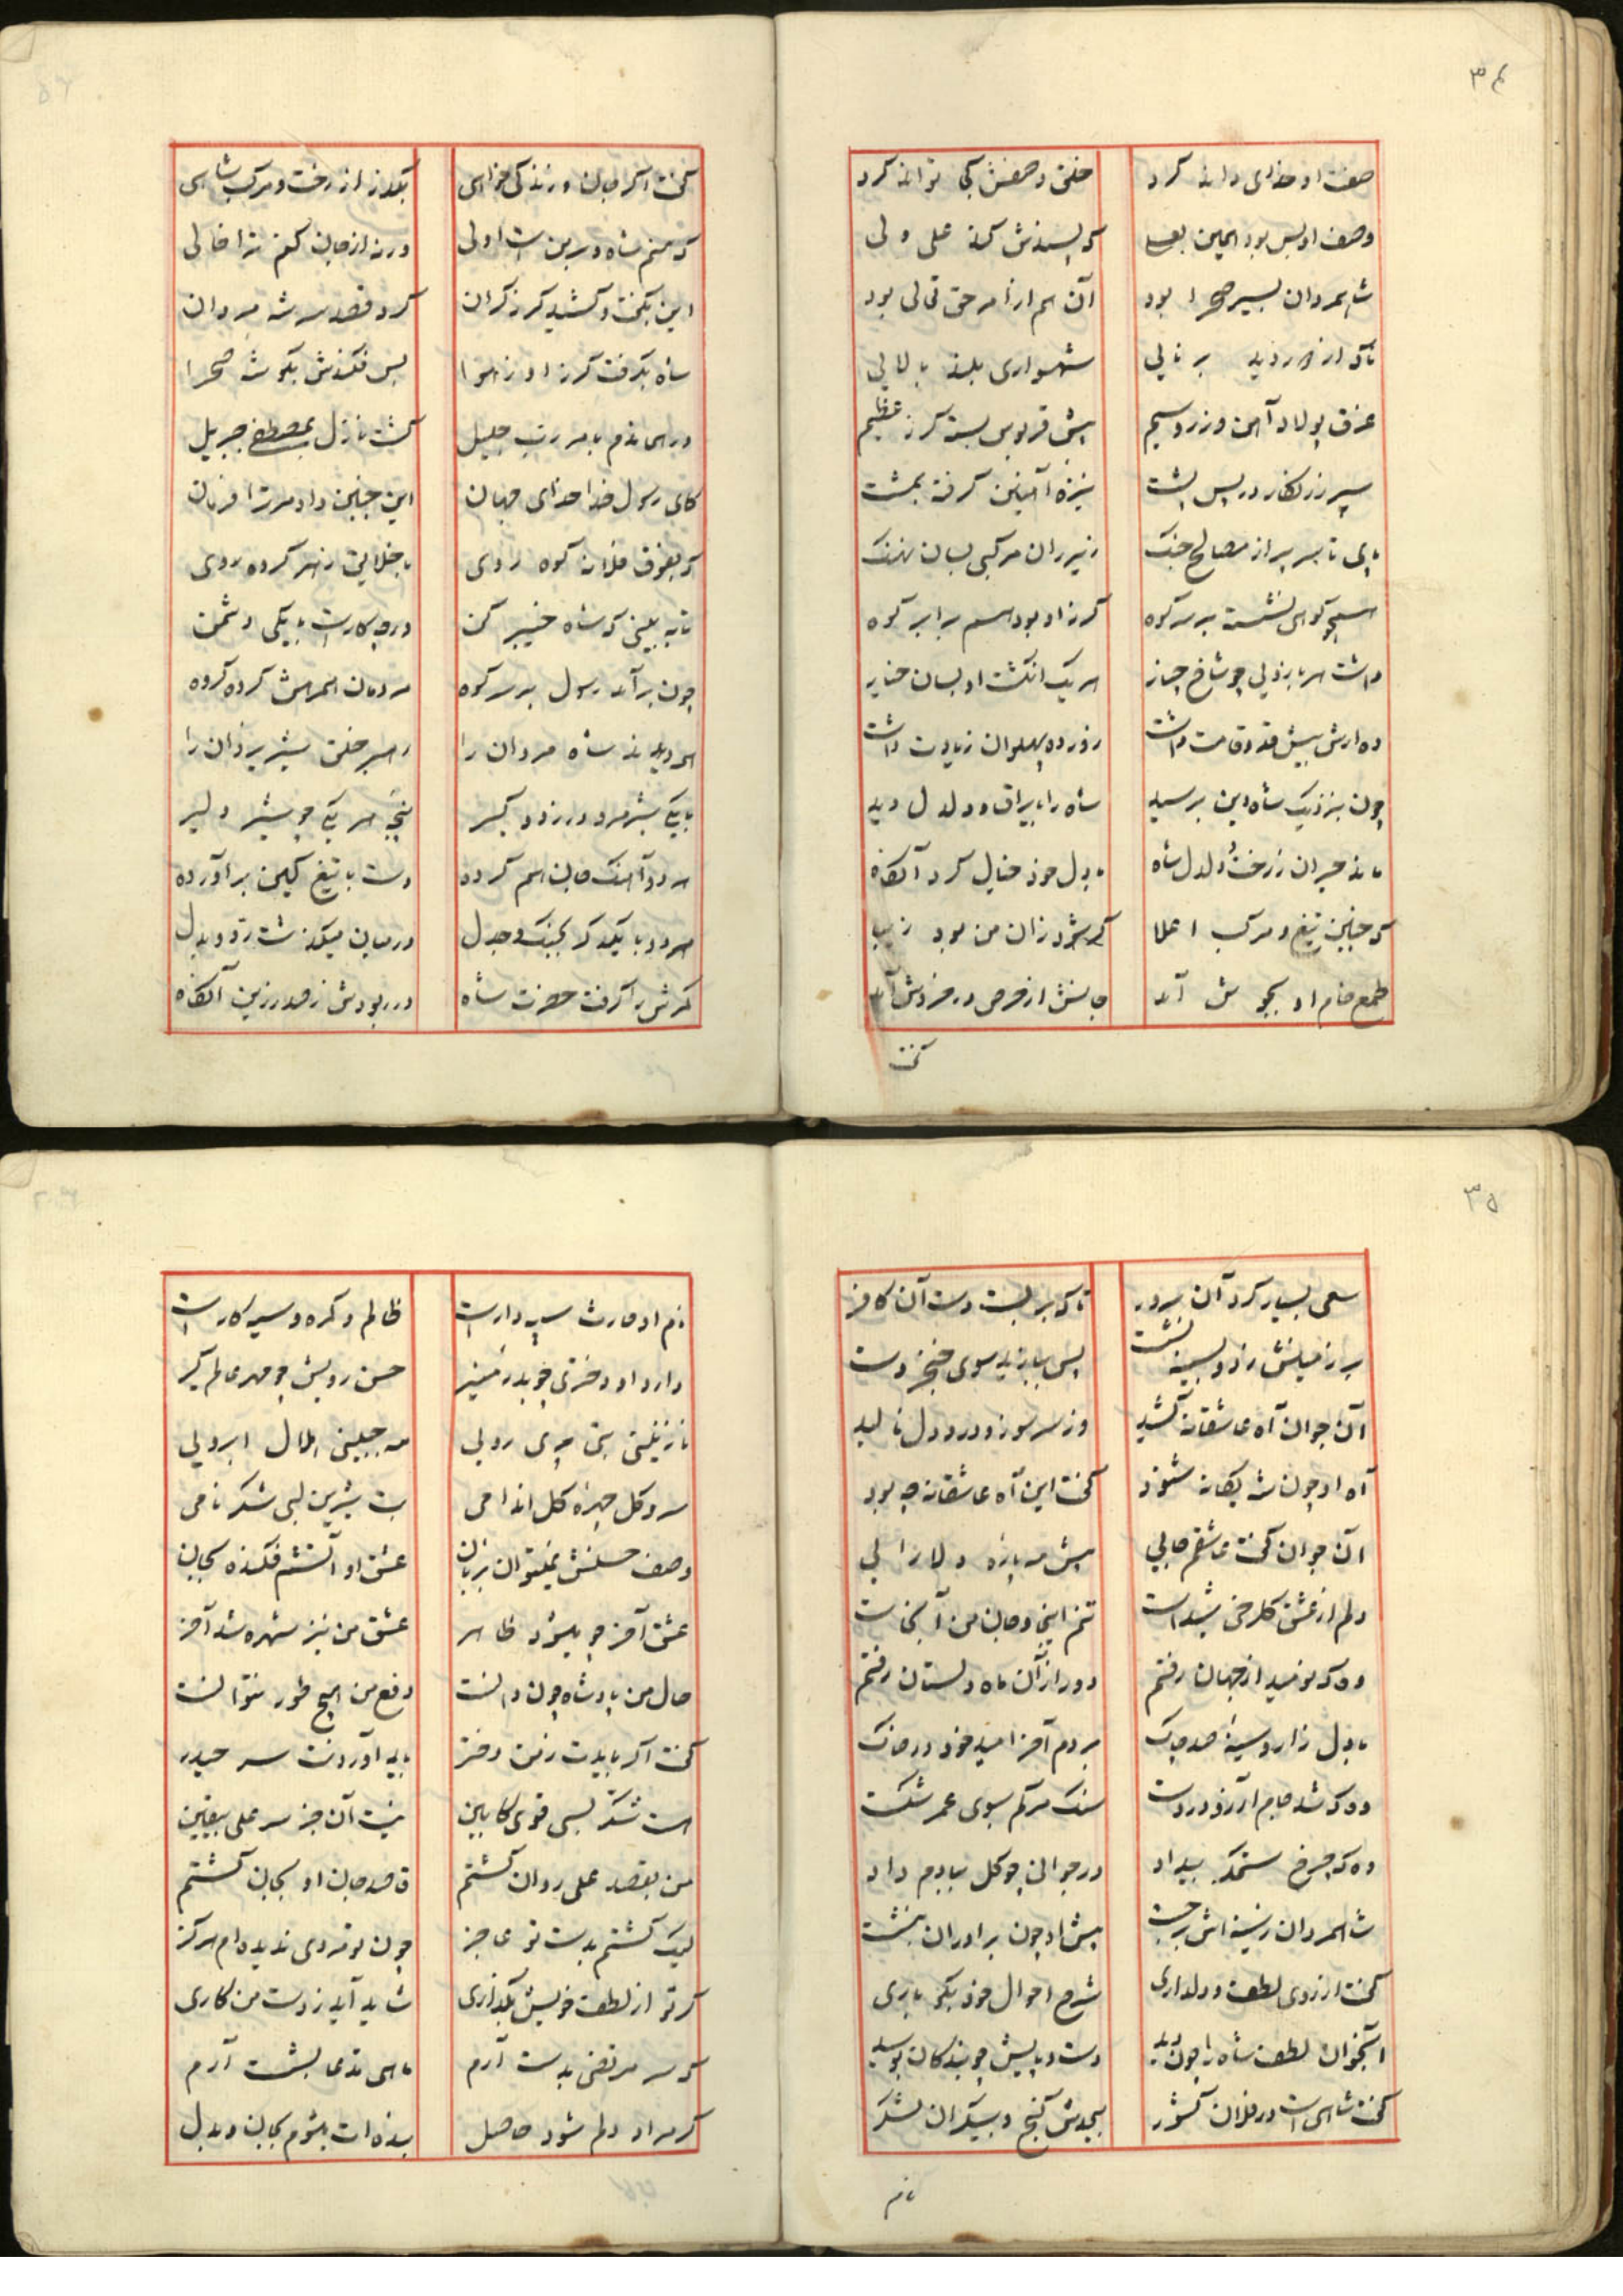 ۳۴
صف او خدای داند کرد خلق وصفش کجا تواند کرد
وصف او بس بود همین یعنی که پسندش کند علی ولی
شاه مردان بسیر صحرا بود آن هم از امر حق تعالی بود
ناکه از دور دید برنایی شهسواری بلند بالایی
غرق پولاد آهن و زر و سیم پیش قربوس بسته کرز عظیم
سپر زرنکار در پس پشت نیزه آهنین کرفته بمشت
پای تا سر پر از مصالح جنک زیر ران مرکبی بسان نهنک
همچو کوهی نشسته بر سر کوه کرز او بود هم برابر کوه
داشت هر بازویی چو شاخ چنار هر یک انکشت او بسان خیار
ده ارش بیش قد و قامت داشت زور ده پهلوان زیادت داشت
چون بنزدیک شاه دین برسید شاه را با یراق و دلدل دید
ماند حیران ز رخت و دلدل شاه با دل خود خیال کرد آنکاه
که چنین تیغ و مرکب اعلا کر شود زان من بود زیبا
طمع خام او بجوش آمد جانش از حرص در خروش آمد
کفت
کفت اکر جان و زندکی خواهی بکذر از رخت و مرکب شاهی
که منم شاه و سر بمن است اولی ورنه از جان کنم ترا خالی
این بکفت و کشید کرز کران کرد قصد سر شه مردان
شاه بکرفت کرز او ز هوا پس فکندش بکوشه صحرا
در همان دم بامر رب جلیل کشت نازل بمصطفی جبریل
کای رسول خدا خدای جهان این چنین داد مر ترا فرمان
که بفوق فلانه کوه روی با خلایق ز شهر کرده روی
تا به بینی که شاه خیبر کن در چه کار است با یکی دشمن
چون برآمد رسول بر سر کوه مردمان همرهش کروه کروه
همه دیدند شاه مردان را رهبر خلق شیر یزدان را
با یکی شیر مرد در زد و کیر پنجه هر یکی چو شیر دلیر
هر دو آهنک جان هم کرده دست با تیغ کین برآورده
هر دو با یکدکر بجنک و جدل در میان میکذشت رد و بدل
کمرش را کرفت حضرت شاه در ربودش ز صدر زین آنکاه
۳۵
سعی بسیار کرد آن سرور تا که بر بست دست آن کافر
بر زمینش زد و بسینه نشست پس بیازید سوی خنجر دست
آن جوان آه عاشقانه کشید وز سر سوز و درد دل نالید
آه او چون شه یکانه شنود کفت این آه عاشقانه چه بود
آن جوان کفت عاشقم جایی پیش مه پاره دلارایی
دلم از عشق کلرخی شیداست تنم اینجا و جان من آنجاست
وه که نومید از جهان رفتم دور از آن ماه دلستان رفتم
با دل زار و سینه صد چاک بردم آخر امید خود در خاک
وه که شد جام آرزو در دست سنک مرکم سبوی عمر شکست
وه که چرخ ستمکر بیداد در جوانی چو کل ببادم داد
شاه مردان ز سینه اش برجست پیش او چون برادران بنشست
کفت از روی لطف و دلداری شرح احوال خود بکو باری
آنجوان لطف شاه را چون دید دست و پایش چو بندکان بوسید
کفت شاهی است در فلان کشور بیحدش کنج و بیکران لشکر
نام
نام او حارث سپه دار است ظالم و کمره و سیه کار است
دارد او دختری چو بدر منیر حسن رویش چو مهر عالم کیر
نازنینی بتی پری رویی مه جبینی هلال ابرویی
سرو کل چهره کل اندامی بت شیرین لبی شکر نامی
وصف حسنش نمیتوان بزبان عشق او آتشم فکنده بجان
عشق آخر چو میشود ظاهر عشق من نیز شهره شد آخر
حال من پادشاه چون دانست دفع من هیچ طور نتوانست
کفت اکر بایدت ز من دختر باید آوردنت سر حیدر
هست شکر بسی قوی کابین نیست آن جز سر علی بیقین
من بقصد علی روان کشتم قاصد جان او بجان کشتم
لیک کشتم بدست تو عاجز چون تو مردی ندیده ام هرکز
کر تو از لطف خویش بکذاری شاید آید ز دست من کاری
که سر مرتضی بدست آرم ماهی مدعا بشست آرم
کر مراد دلم شود حاصل بنده ات میشوم بجان و بدل